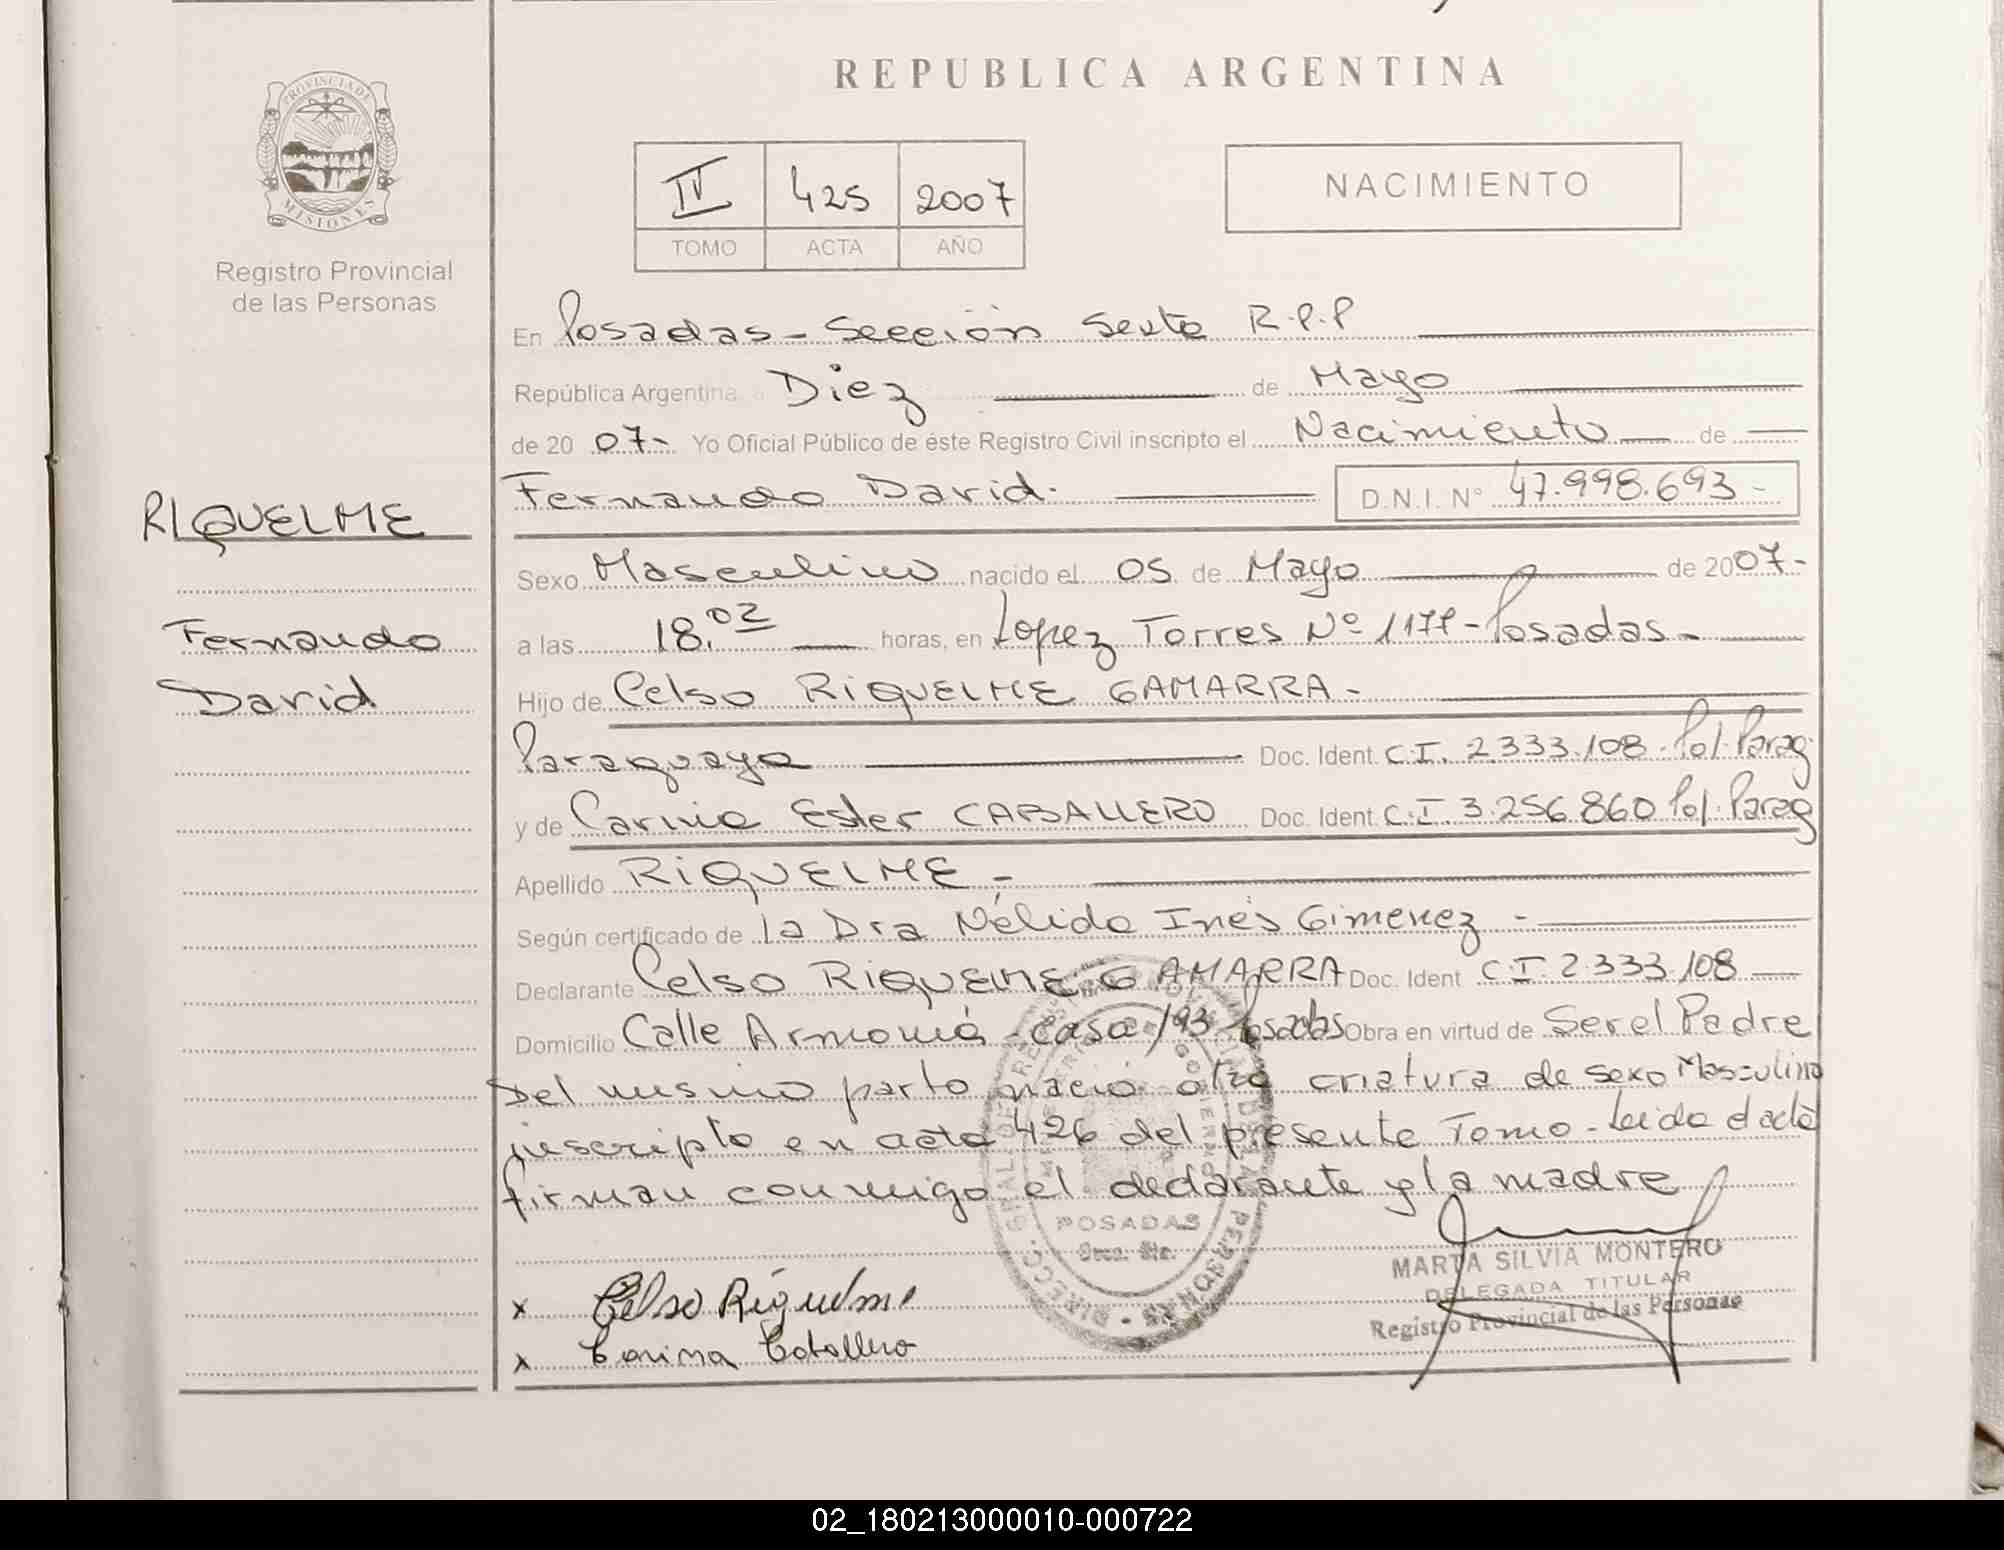 REPUBLICA ARGENTINA
PROVINCIA DE
MISIONES
Registro Provincial
de las Personas
IV 425 2007
TOMO ACTA AÑO
NACIMIENTO
En Posadas - Sección Sexta R.P.P
República Argentina, a Diez de Mayo
de 20 07- Yo Oficial Público de éste Registro Civil inscripto el Nacimiento de
Fernando David. D.N.I. Nº 47.998.693-
RIQUELME
Fernando
David
Sexo Masculino nacido el 05 de Mayo de 2007-
a las 18.02 horas, en Lopez Torres Nº 1177-Posadas-
Hijo de Celso RIQUELME GAMARRA-
Paraguayo Doc. Ident. C.I. 2.333.108-Pol.Parag
y de Carina Ester CABALLERO Doc. Ident. C.I 3.256.860 Pol.Parag
Apellido RIQUELME-
Según certificado de la Dra Nélida Inés Gimenez-
Declarante Celso RIQUELME GAMARRA Doc. Ident C.I. 2.333.108
Domicilio Calle Armonía-casa 193 Posadas Obra en virtud de Ser el Padre
Del mismo parto nació otra criatura de sexo Masculino
inscripto en acta 426 del presente Tomo-Leida el acta
firman conmigo el declarante y la madre
POSADAS
Secc. 6ta.
MARTA SILVIA MONTERO
DELEGADA TITULAR
Registro Provincial de las Personas
x Celso Riquelme
x Carina Caballero
02_180213000010-000722